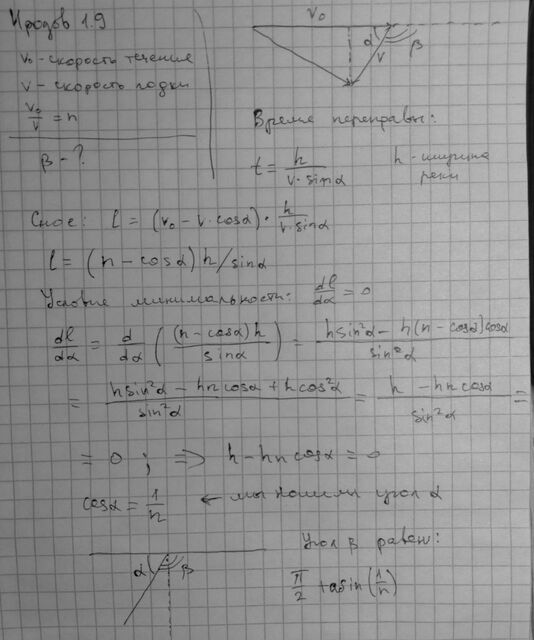 Иродов 1.9
v₀ - скорость течения
v - скорость лодки
v₀/v = n
β - ?
v₀
α
v
β
Время переправы:
t = h/(v·sinα)
h - ширина реки
Снос: l = (v₀ - v·cosα)·h/(v·sinα)
l = (n - cosα) h/sinα
Условие минимальности: dl/dα = 0
dl/dα = d/dα ((n - cosα)h/sinα) = (h sin²α - h(n - cosα)cosα)/sin²α
= (h sin²α - hn cosα + h cos²α)/sin²α = (h - hn cosα)/sin²α =
= 0 ; => h - hn cosα = 0
cosα = 1/n ← мы нашли угол α
α
β
Угол β равен:
π/2 + asin(1/n)